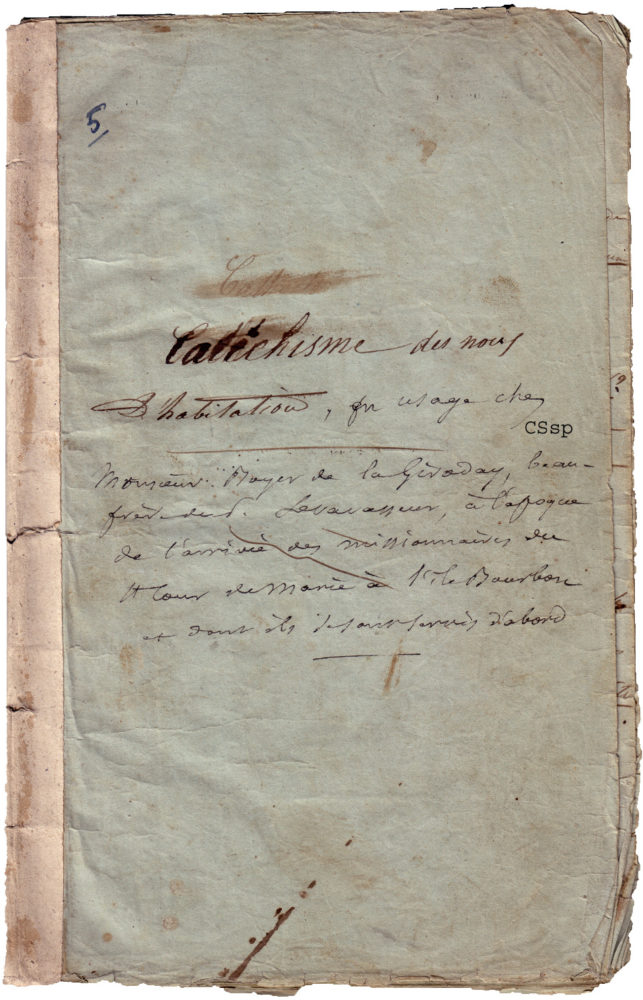 5
Catéchisme des noirs
D'habitation, en usage chez
CSsp
Monsieur Boyer de la Giroday, beau-
frère du P. Levavasseur, à l'époque
de l'arrivée des missionnaires du
St Cœur de Marie à l'île Bourbon
et dont ils se sont servis d'abord